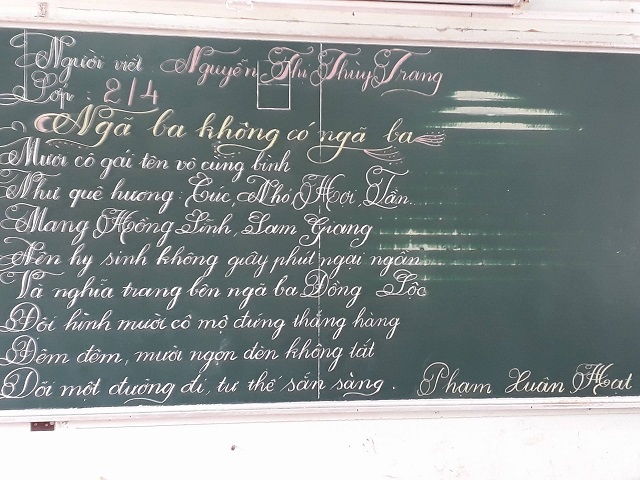 Người viết: Nguyễn Thi Thùy Trang
Lớp: 2/4
Ngã ba không có ngã ba
Mười cô gái tên vô cùng bình
Như quê hương: Cúc, Nhỏ, Hợi, Tần.
Mang Hồng Lĩnh, Lam Giang
Nên hy sinh không giây phút ngại ngần
Và nghĩa trang bên ngã ba Đồng Lộc
Đội hình mười cô mộ đứng thẳng hàng
Đêm đêm, mười ngọn đèn không tắt
Dõi một đường đi, tư thế sẵn sàng.
Phạm Xuân Hat